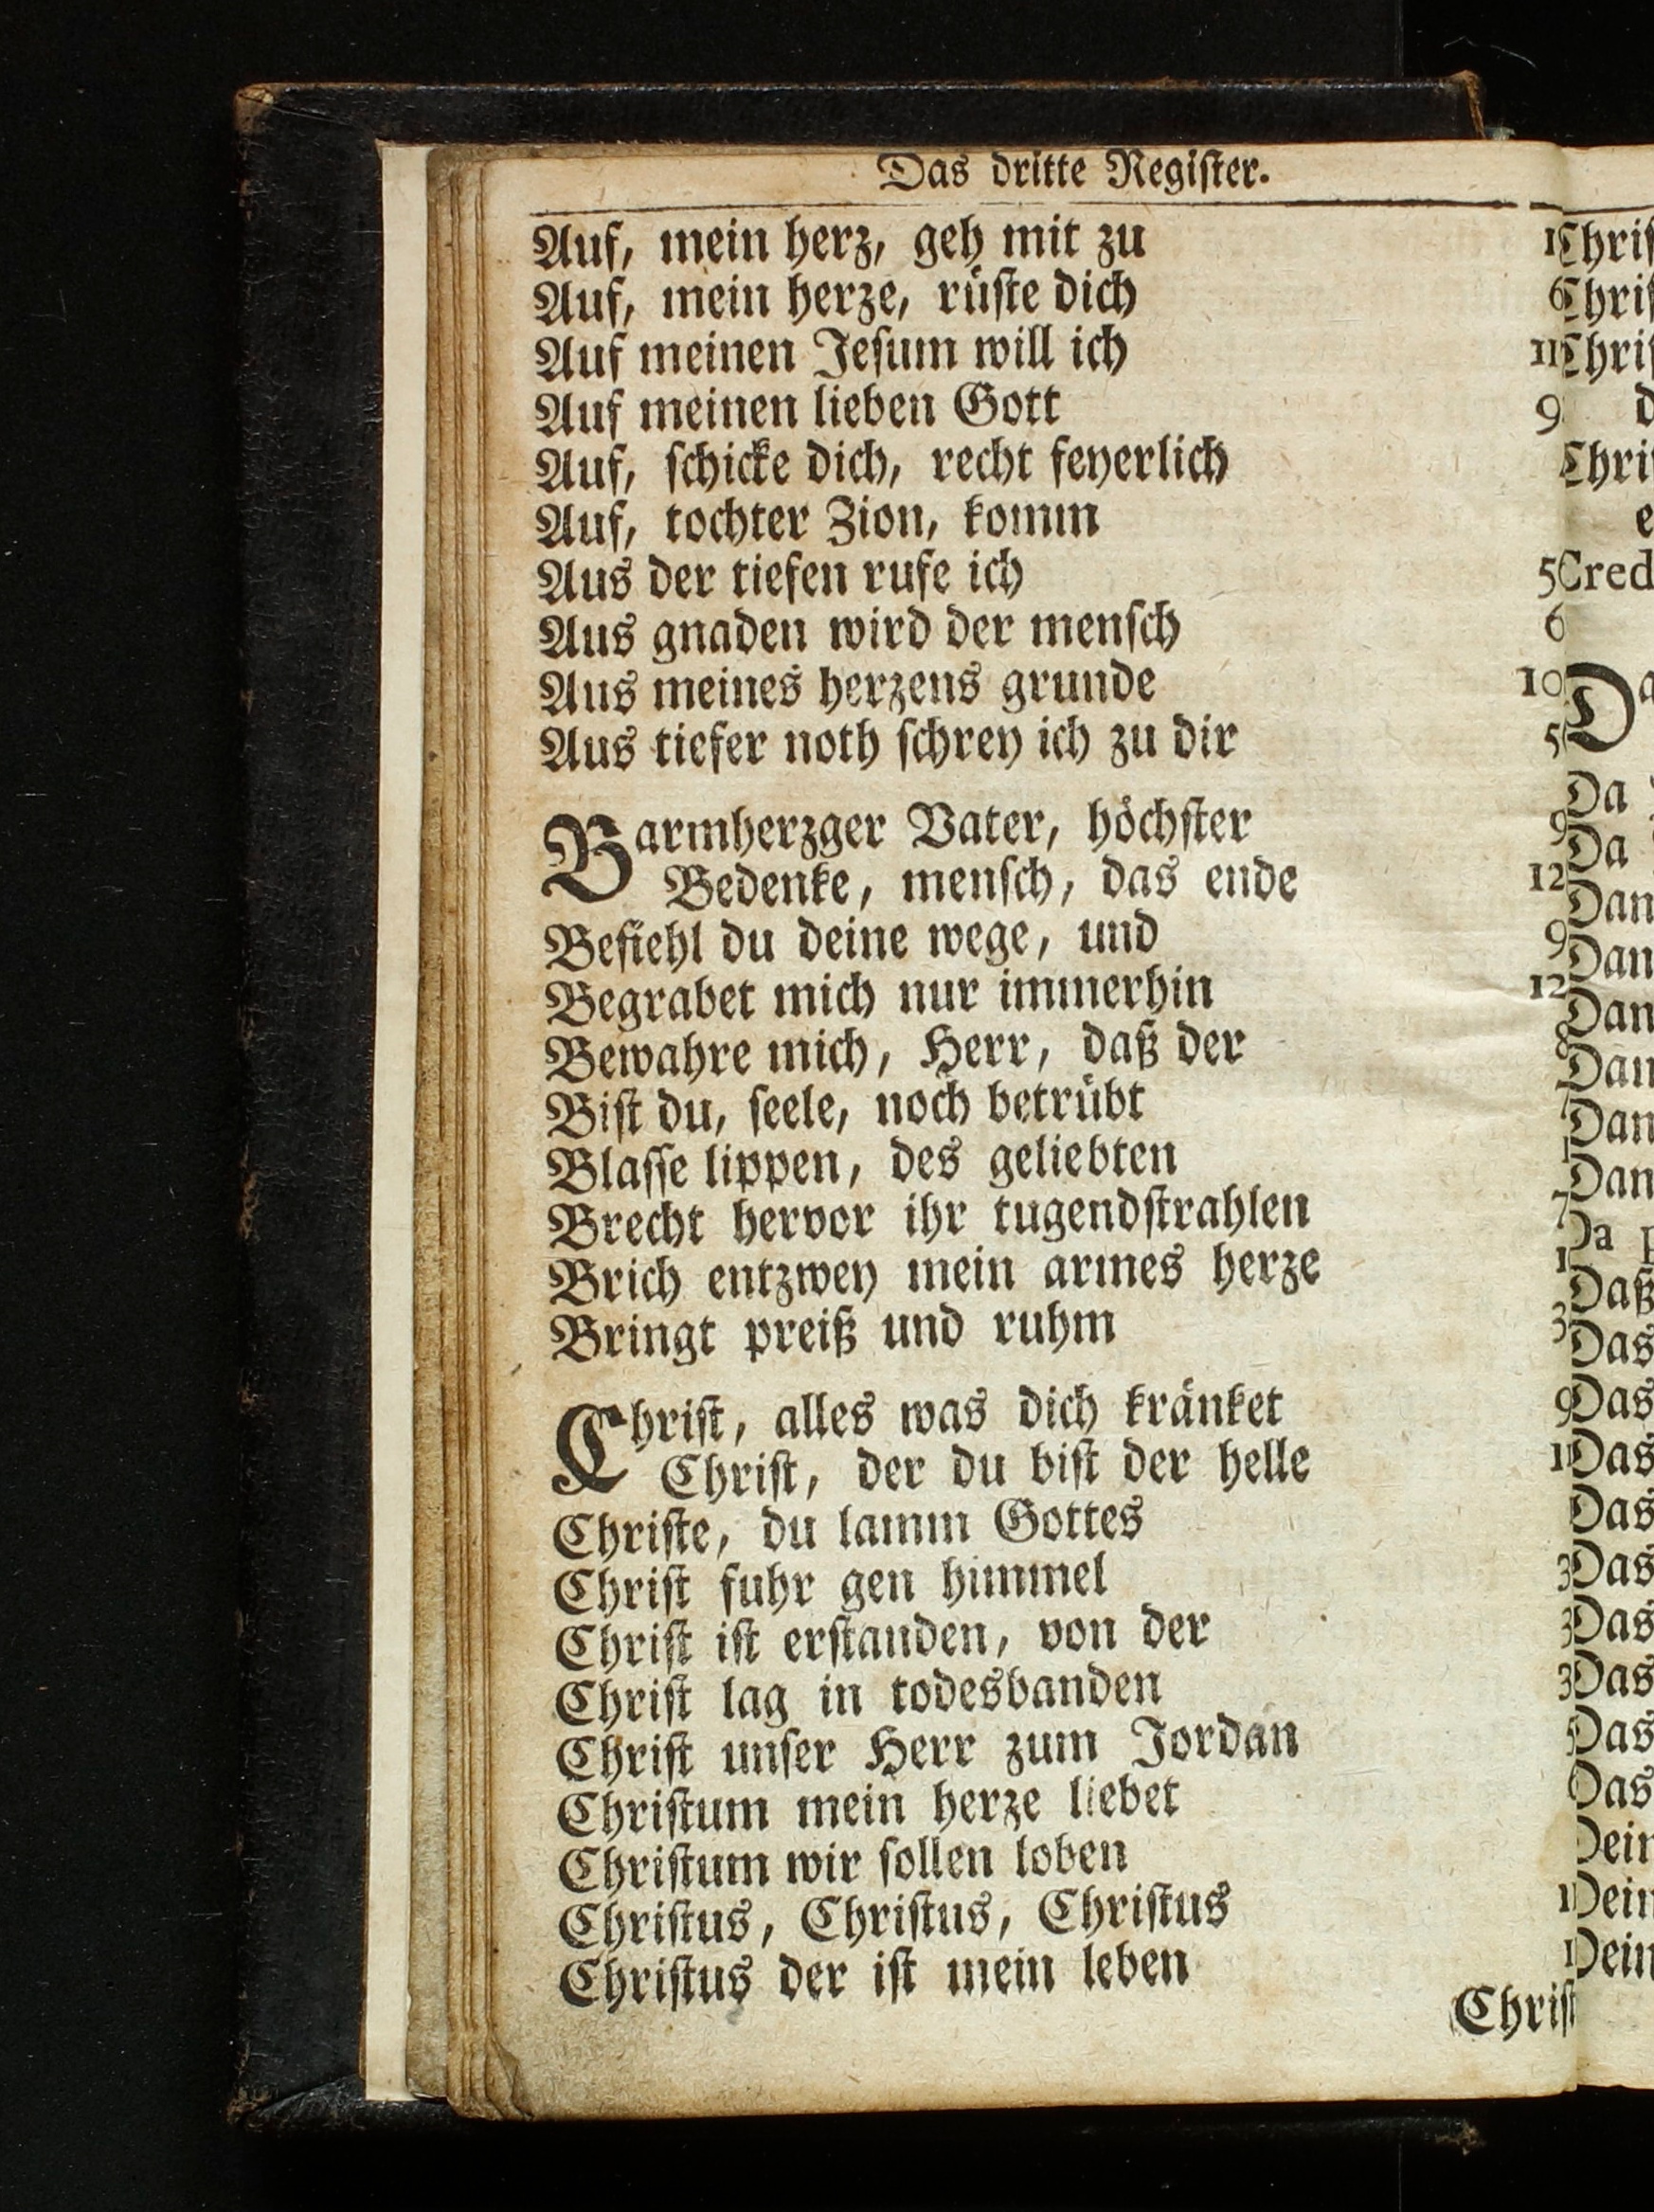 Das dritte Regiſter.
Auf, mein herz, geh mit zu
Auf, mein herze, rüſte dich
Auf meinen Jeſum will ich
Auf meinen lieben Gott
Auf, ſchicke dich, recht feyerlich
Auf, tochter Zion, komm
Aus der tiefen rufe ich
Aus gnaden wird der menſch
Aus meines herzens grunde
Aus tiefer noth ſchrey ich zu dir
Barmherzger Vater, höchſter
Bedenke, menſch, das ende
Befiehl du deine wege, und
Begrabet mich nur immerhin
Bewahre mich, Herr, daß der
Biſt du, ſeele, noch betrübt
Blaſſe lippen, des geliebten
Brecht hervor ihr tugendſtrahlen
Brich entzwey mein armes herze
Bringt preiß und ruhm
Chriſt, alles was dich kränket
Chriſt, der du biſt der helle
Chriſte, du lamm Gottes
Chriſt fuhr gen himmel
Chriſt iſt erſtanden, von der
Chriſt lag in todesbanden
Chriſt unſer Herr zum Jordan
Chriſtum mein herze liebet
Chriſtum wir ſollen loben
Chriſtus, Chriſtus, Chriſtus
Chriſtus der iſt mein leben
Chriſt